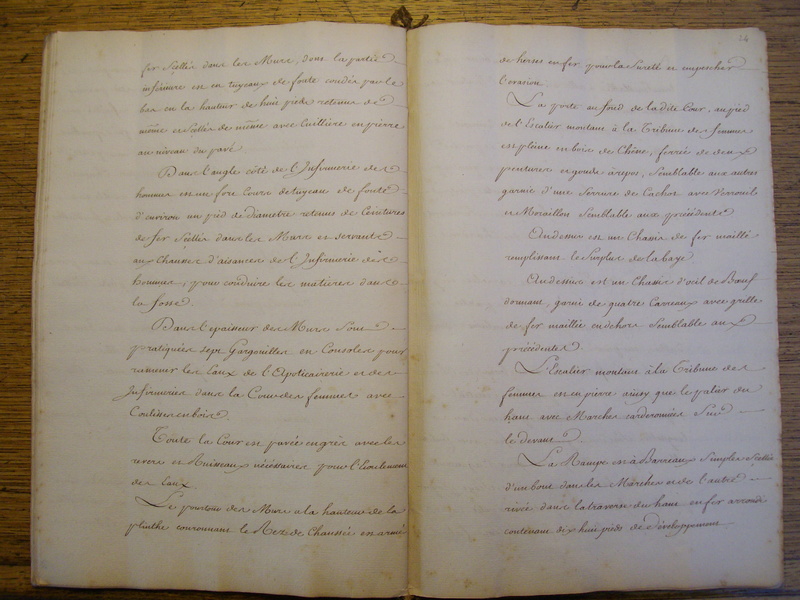 fer Scellés dans les Murs, dont la partie
inférieure est en tuyaux de fonte coudés par le
bas en la hauteur de huit pieds retenus de
même et Scellés de même avec Cuillière en pierre
au niveau du pavé.
Dans l'angle côté de l'Infirmerie des
hommes est un fort Cours de tuyeau de fonte
d'environ un pied de diametre retenus de Ceintures
de fer Scellés dans les Murs et servants
aux Chausses d'aisances de l'Infirmerie des
hommes, pour conduire les matieres dans
la fosse.
Dans l'epaisseur des Murs sont
pratiquées sept Gargouilles en Consoles pour
ramener les Eaux de l'Apoticairerie et des
Infirmeries dans la Cour des femmes avec
Coulisses en bois.
Toute la Cour est pavée en grès avec les
revers et Ruisseaux nécéssaires pour l'Ecoulement
des Eaux.
Le pourtour des Murs a la hauteur de la
plinthe couronnant le Rez de Chaussée est armé
24
de herses en fer pour la Sureté et empescher
l'evasion.
La porte au fond de la dite Cour, au pied
de l'Escalier montant à la Tribune des femmes
est pleine en bois de Chêne, ferrée de deux
pentures en goude à repos, Semblable aux autres
garnie d'une Serrure de Cachot avec Verrouil
et Moraillon Semblable aux précédents.
Au dessus est un Chassis de fer maillé
remplissant le Surplus de la baye.
Au dessus est un Chassis d'oeil de Boeuf
dormant, garni de quatre Carreaux avec grille
de fer maillée en dehors Semblable aux
précédentes.
L'Escalier montant à la Tribune des
femmes est en pierre ainsy que le palier du
haut avec Marches carderonnées Sur
le devant.
La Rampe est à Barreaux Simples Scellés
d'un bout dans les Marches et de l'autre
rivés dans la traverse du haut en fer arrondi
contenant dix huit pieds de Développement